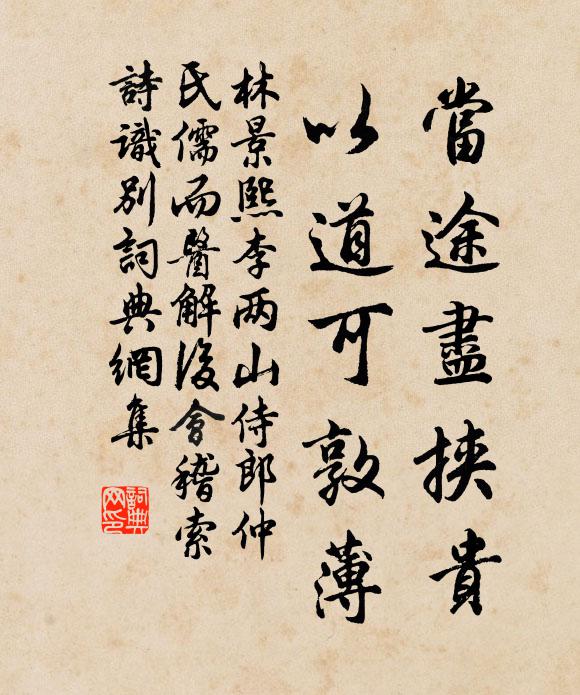 當途盡挾貴
以道可敦薄
林景熙李两山侍郎仲
氏儒而醫解后會稽索
詩識别詞典網集
詞典
网印